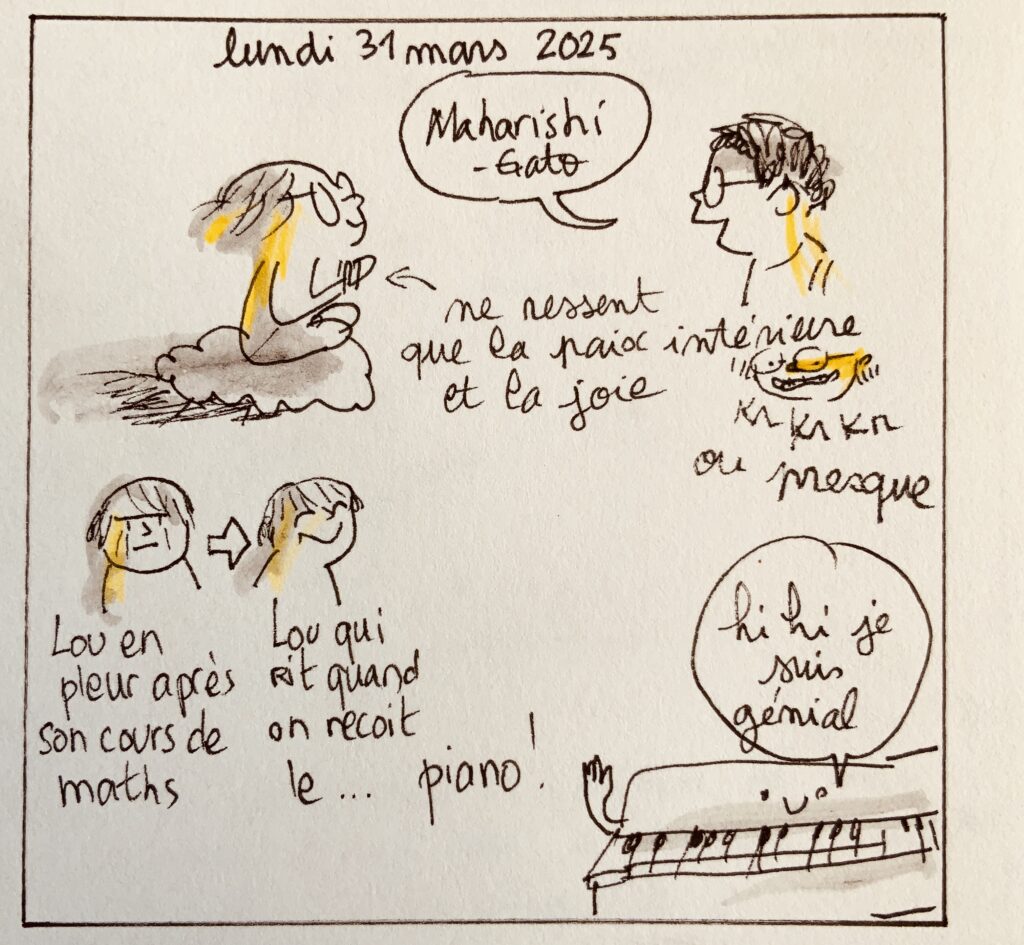 lundi 31 mars 2025
Maharishi
-Gato
ne ressent
que la paix intérieure
et la joie
Kr Kr Kr
ou presque
Lou en
pleur après
son cours de
maths
Lou qui
rit quand
on recoit
le ... piano !
hi hi je
suis
génial